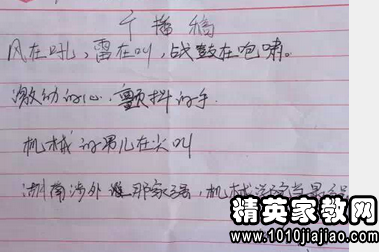 广播稿
风在吼,雷在叫,战鼓在咆啸。
激动的心,颤抖的手
机械的男儿在尖叫
湖南涉外谁那家强,机械
精英家教网
www.1010jiajiao.com